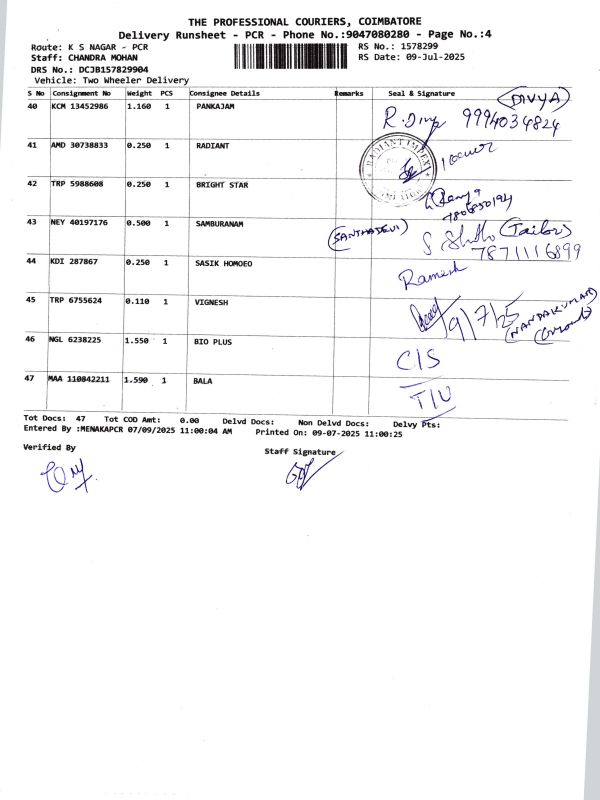 THE PROFESSIONAL COURIERS, COIMBATORE
Delivery Runsheet - PCR - Phone No.:9047080280 - Page No.:4
Route: K S NAGAR - PCR RS No.: 1578299
Staff: CHANDRA MOHAN RS Date: 09-Jul-2025
DRS No.: DCJB157829904
Vehicle: Two Wheeler Delivery
S No Consignment No Weight PCS Consignee Details Remarks Seal & Signature
(DIVYA)
40 KCM 13452986 1.160 1 PANKAJAM 9994034824
41 AMD 30738833 0.250 1 RADIANT RADIANT IMPEX
42 TRP 5988608 0.250 1 BRIGHT STAR
43 NEY 40197176 0.500 1 SAMBURANAM (SANTHADEVI) (Tailor)
7871116899
44 KDI 287867 0.250 1 SASIK HOMOEO Ramesh
45 TRP 6755624 0.110 1 VIGNESH 9/7/25 (NANDAKUMAR)
46 NGL 6238225 1.550 1 BIO PLUS C/S
47 MAA 110842211 1.590 1 BALA T/U
Tot Docs: 47 Tot COD Amt: 0.00 Delvd Docs: Non Delvd Docs: Delvy Pts:
Entered By :MENAKAPCR 07/09/2025 11:00:04 AM Printed On: 09-07-2025 11:00:25
Verified By Staff Signature